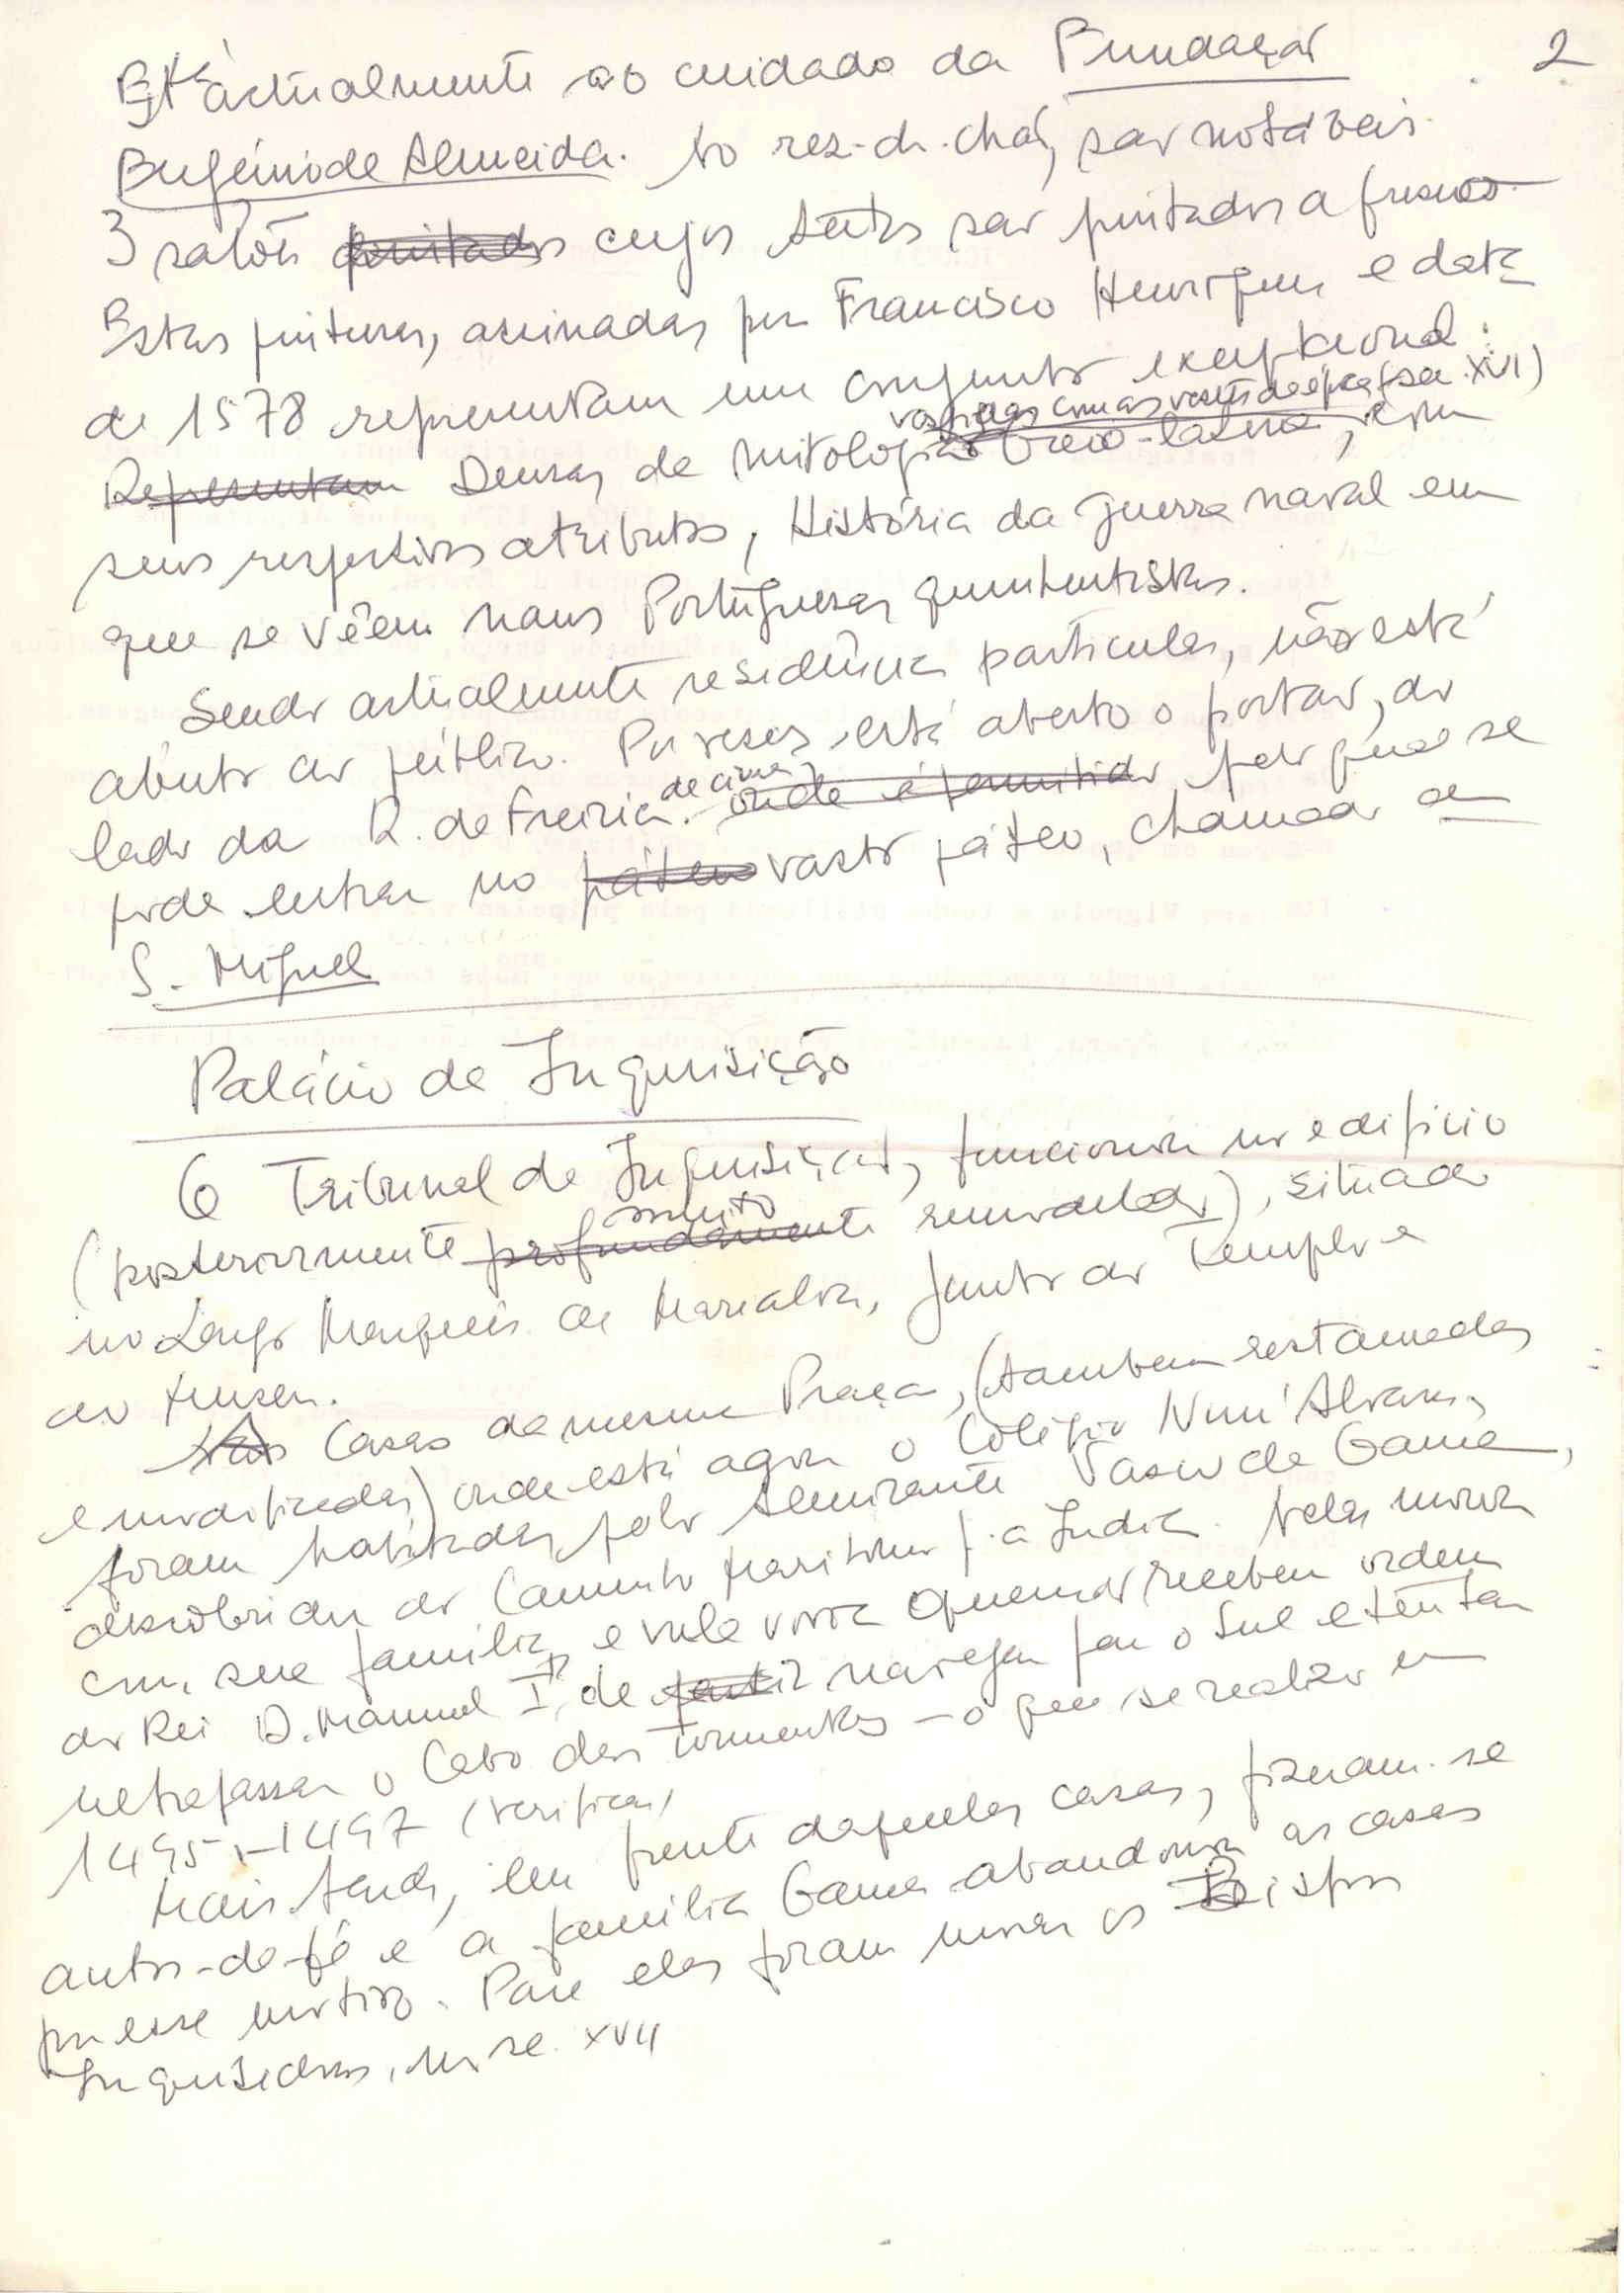 2
Está actualmente ao cuidado da Fundação
Eugénio de Almeida. No rez-do-chão, são notáveis
3 salões pintados cujos tectos são pintados a fresco
Estas pinturas, assinadas por Francisco Henriques e data
de 1578 representam um conjunto excepcional:
vestidas com as vestes da época (séc. XVI)
Representam Deusas da Mitologia Greco-latina, com
seus respectivos atributos, História da guerra naval em
que se vêem naus Portuguesas quinhentistas.
Sendo actualmente residência particular, não está
aberto ao público. Por vezes, está aberto o portão, do
lado da R. de Freiria de cima, onde é permitido pelo qual se
pode entrar no páteo vasto páteo, chamado de
S. Miguel
Palácio da Inquisição
O Tribunal da Inquisição, funcionou no edifício
(posteriormente profundamente muito remodelado), situado
no Largo Marquês de Marialva, junto ao Templo e
ao Museu.
As Casas da mesma Praça, (tambem restauradas
e modificadas) onde está agora o Colégio Nun'Alvares,
foram habitadas pelo Almirante Vasco da Gama,
descobridor do Caminho Maritimo p.a India. Nelas morou
com sua familia, e nele vivia quando recebeu ordem
do Rei D. Manuel Iº, de partir navegar para o Sul e tentar
ultrapassar o Cabo das Tormentas – o que se realizou em
1495-1497 (verificar)
Mais tarde, em frente daquelas casas, fizeram-se
autos-de-fé e a família Gama abandonou as casas
por esse motivo. Para elas foram morar os Bispos
Inquisidores, no séc. XVII